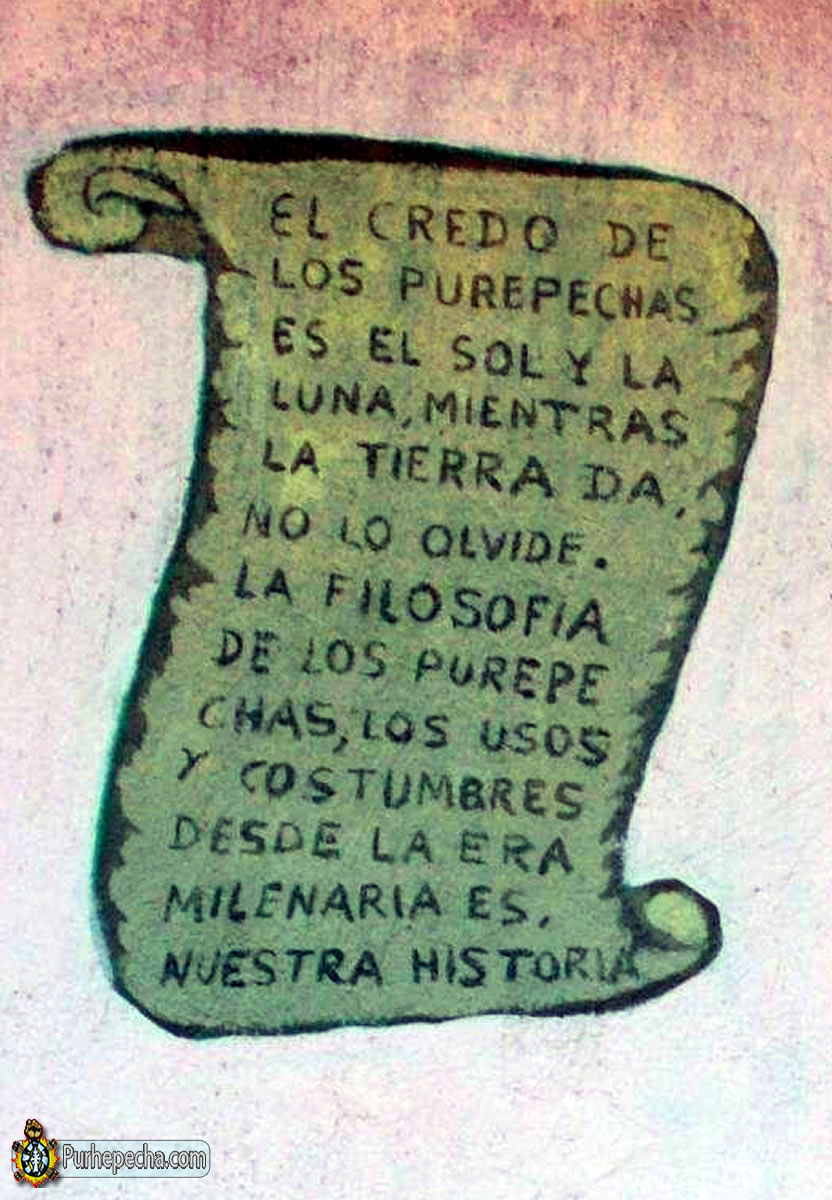 EL CREDO DE
LOS PUREPECHAS
ES EL SOL Y LA
LUNA, MIENTRAS
LA TIERRA DA,
NO LO OLVIDE.
LA FILOSOFIA
DE LOS PUREPE
CHAS, LOS USOS
Y COSTUMBRES
DESDE LA ERA
MILENARIA ES,
NUESTRA HISTORIA
Purhepecha.com